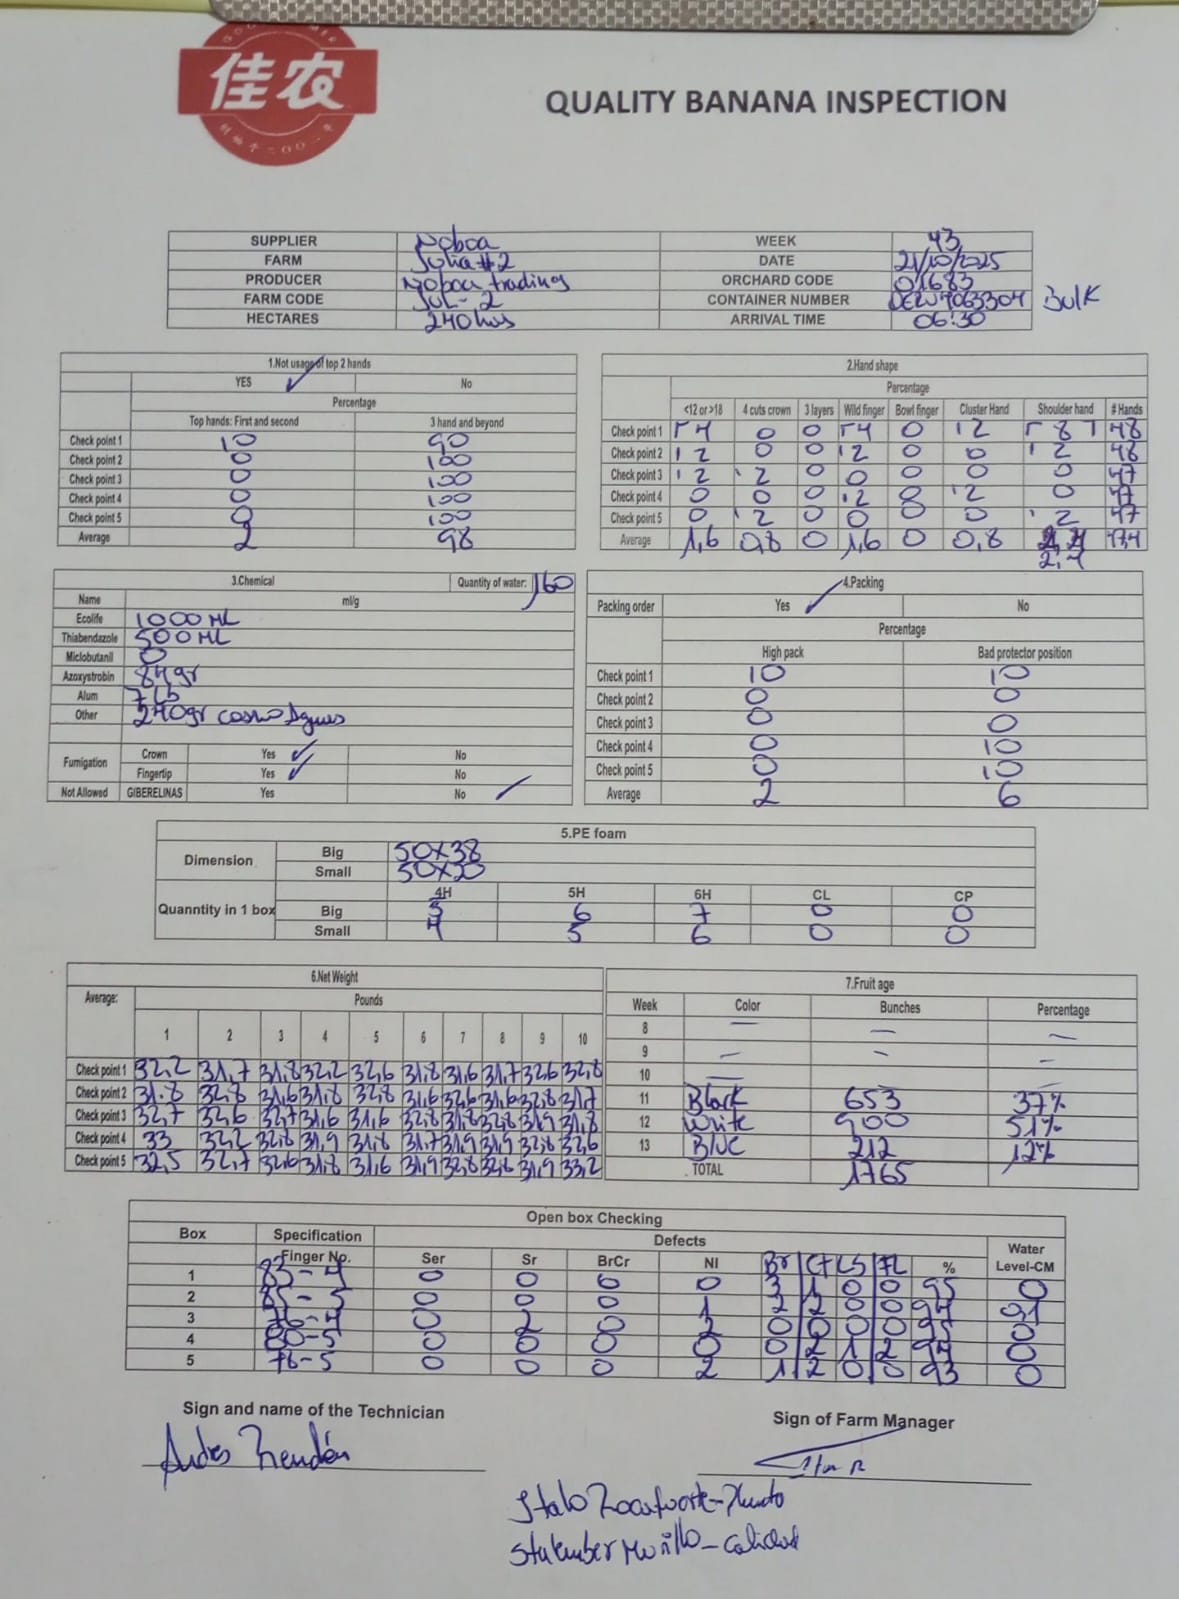 佳农
创始于二〇〇一年
QUALITY BANANA INSPECTION
SUPPLIER Noboa WEEK 43
FARM Julia #2 DATE 21/10/2025
PRODUCER Noboa trading ORCHARD CODE 01683
FARM CODE JUL-2 CONTAINER NUMBER Bulk
HECTARES 240 ARRIVAL TIME 06:30
1.Not usage of top 2 hands
YES ✓ No
Percentage
Top hands: First and second 3 hand and beyond
Check point 1 10 90
Check point 2 0 100
Check point 3 0 100
Check point 4 0 100
Check point 5 0 100
Average 2 98
2.Hand shape
Percentage
<12 or >18 4 cuts crown 3 layers Wild finger Bowl finger Cluster Hand Shoulder hand # Hands
Check point 1 4 0 0 4 0 2 8 48
Check point 2 2 0 0 2 0 0 2 48
Check point 3 2 2 0 0 0 0 0 47
Check point 4 0 0 0 2 0 2 0 47
Check point 5 0 2 0 0 0 0 2 47
Average 1,6 0,8 0 1,6 0 0,8 2,4 47,4
3.Chemical Quantity of water: 160
Name ml/g
Ecolife 1000 ML
Thiabendazole 500 ML
Miclobutanil 0
Azoxystrobin 84gr
Alum 7 Lb
Other 240gr
Fumigation Crown Yes ✓ No
Fingertip Yes ✓ No
Not Allowed GIBERELINAS Yes No ✓
4.Packing
Packing order Yes ✓ No
Percentage
High pack Bad protector position
Check point 1 10 10
Check point 2 0 0
Check point 3 0 0
Check point 4 0 10
Check point 5 0 10
Average 2 6
5.PE foam
Dimension Big 50x38
Small 50x20
Quanntity in 1 box 4H 5H 6H CL CP
Big 5 6 7 0 0
Small 4 5 6 0 0
6.Net Weight
Average: Pounds
1 2 3 4 5 6 7 8 9 10
Check point 1 32,2 31,7 31,8 32,2 32,6 31,8 31,6 31,7 32,6 32,8
Check point 2 31.8 32,8 31,6 31,8 32,8 31,6 32,6 31,6 32,8 31,7
Check point 3 32,7 32,6 32,7 31,6 31,6 32,8 31,8 32,8 31,9 31,8
Check point 4 33 32,2 32,8 31,9 31,8 31,7 31,9 31,9 32,8 32,6
Check point 5 32,5 32,7 32,6 31,8 31,6 31,9 32,8 32,6 31,9 33,2
7.Fruit age
Week Color Bunches Percentage
8 — — —
9 — — —
10 —
11 Black 653 37%
12 White 900 51%
13 Blue 212 12%
TOTAL 1765
Open box Checking
Box Specification Defects Water Level-CM
Finger No. Ser Sr BrCr NI Br CT LS FL %
1 83-4 0 0 0 0 3 1 0 0 95 0
2 85-5 0 0 0 1 2 2 0 0 94 0,1
3 76-4 0 2 0 2 0 0 0 0 95 0
4 80-5 0 0 0 0 0 2 1 2 94 0
5 76-5 0 0 0 2 1 2 0 0 93 0
Sign and name of the Technician
Sign of Farm Manager
Andres Rendón
Italo
Murillo - Calidad